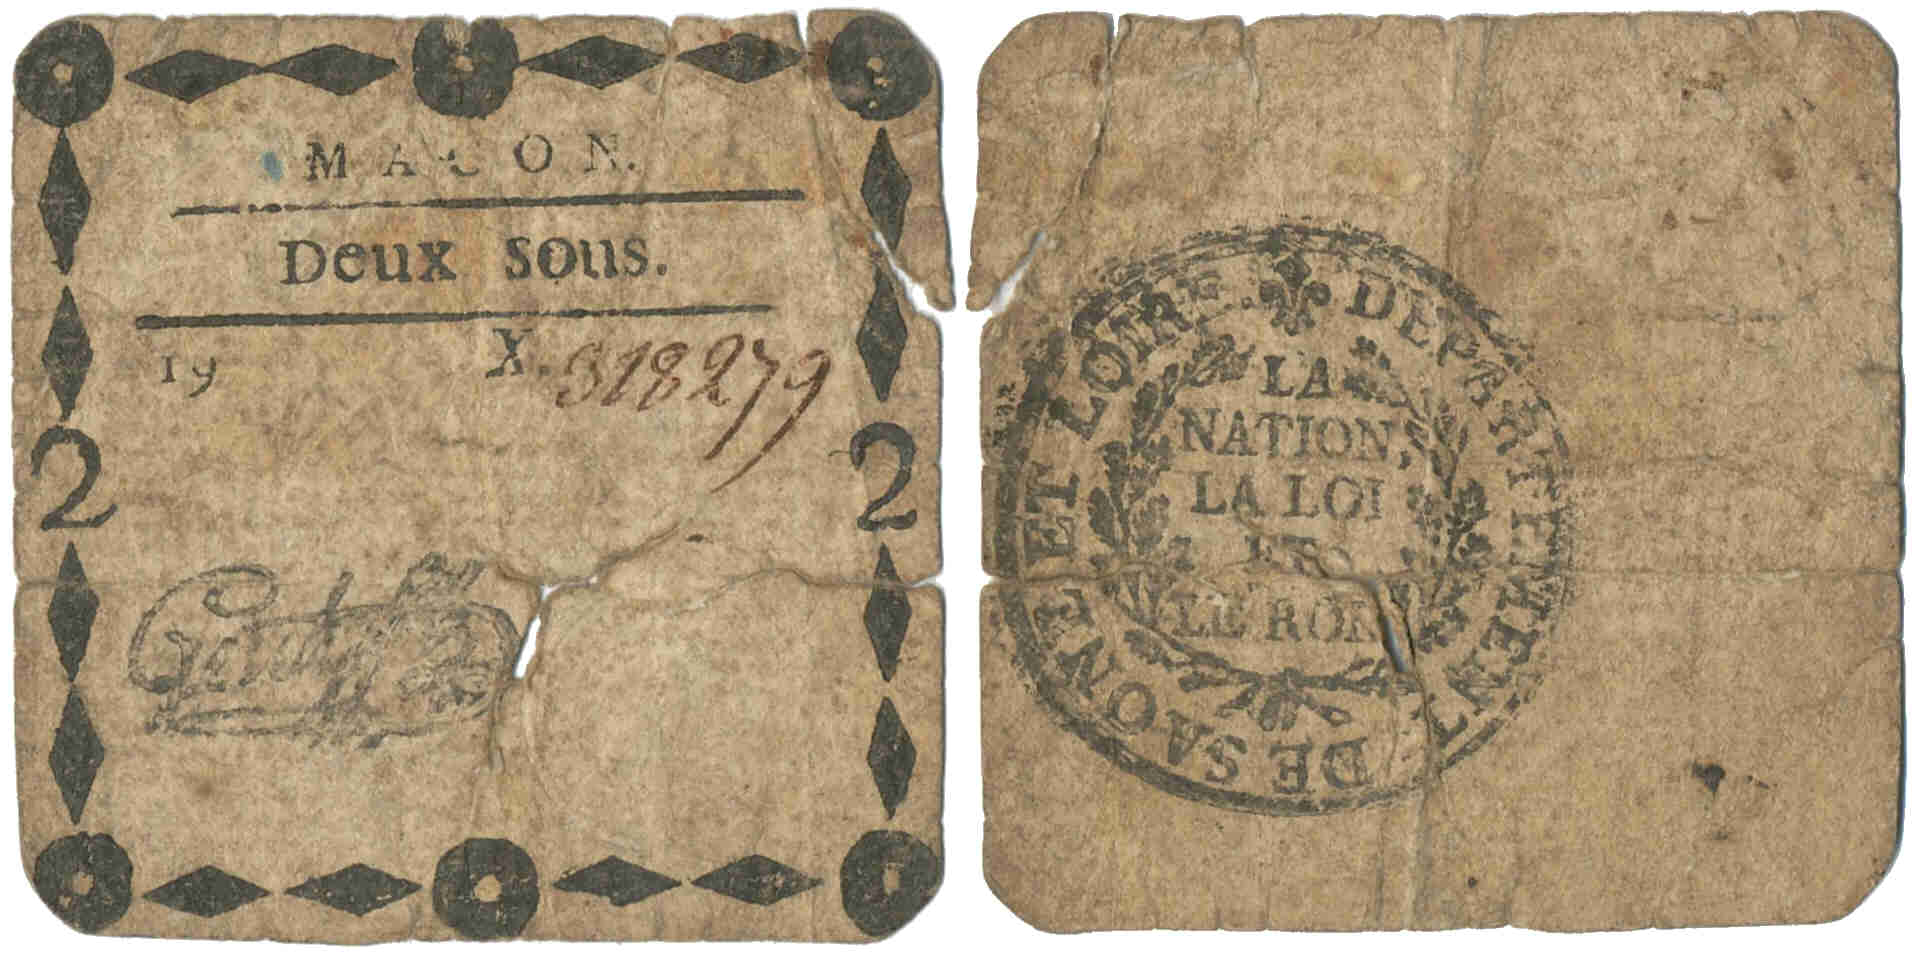 MACON.
Deux sous.
19 X. 318279
2 2
DEPARTEMENT DE SAONE ET LOIRE.
LA
NATION,
LA LOI
ET
LE ROI